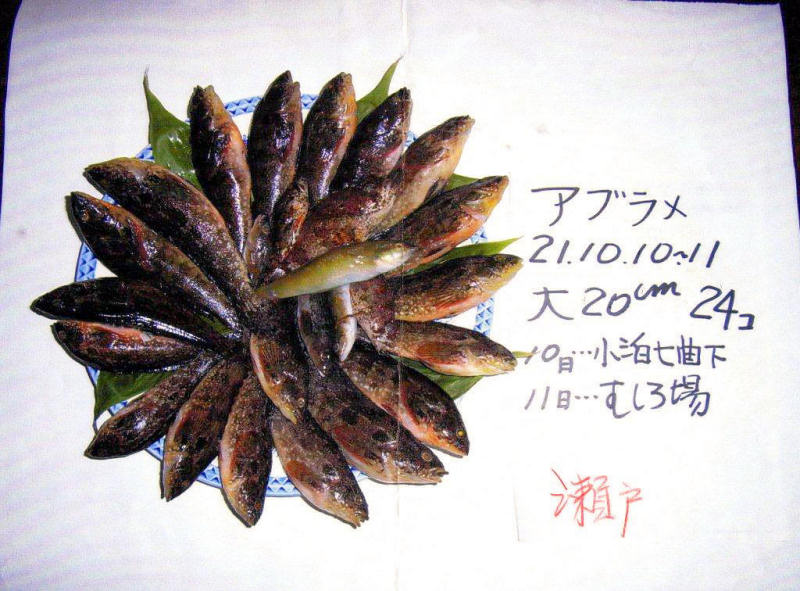 アブラメ
21.10.10~11
大20cm 24コ
10日…小泊七曲下
11日…むしろ場
瀬戸